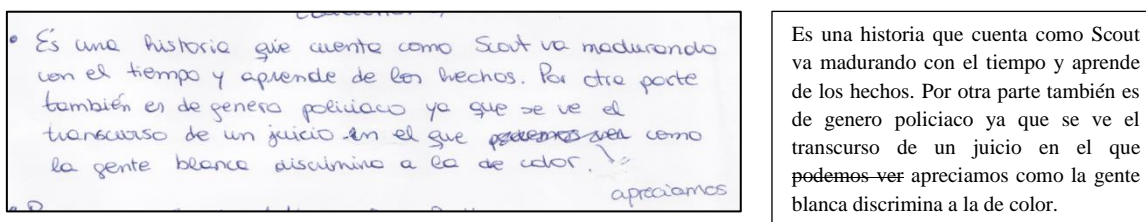 • Es una historia que cuenta como Scout va madurando
con el tiempo y aprende de los hechos. Por otra parte
también es de genero policiaco ya que se ve el
transcurso de un juicio en el que podemos ver como
la gente blanca discrimina a la de color.
apreciamos
Es una historia que cuenta como Scout
va madurando con el tiempo y aprende
de los hechos. Por otra parte también es
de genero policiaco ya que se ve el
transcurso de un juicio en el que
podemos ver apreciamos como la gente
blanca discrimina a la de color.